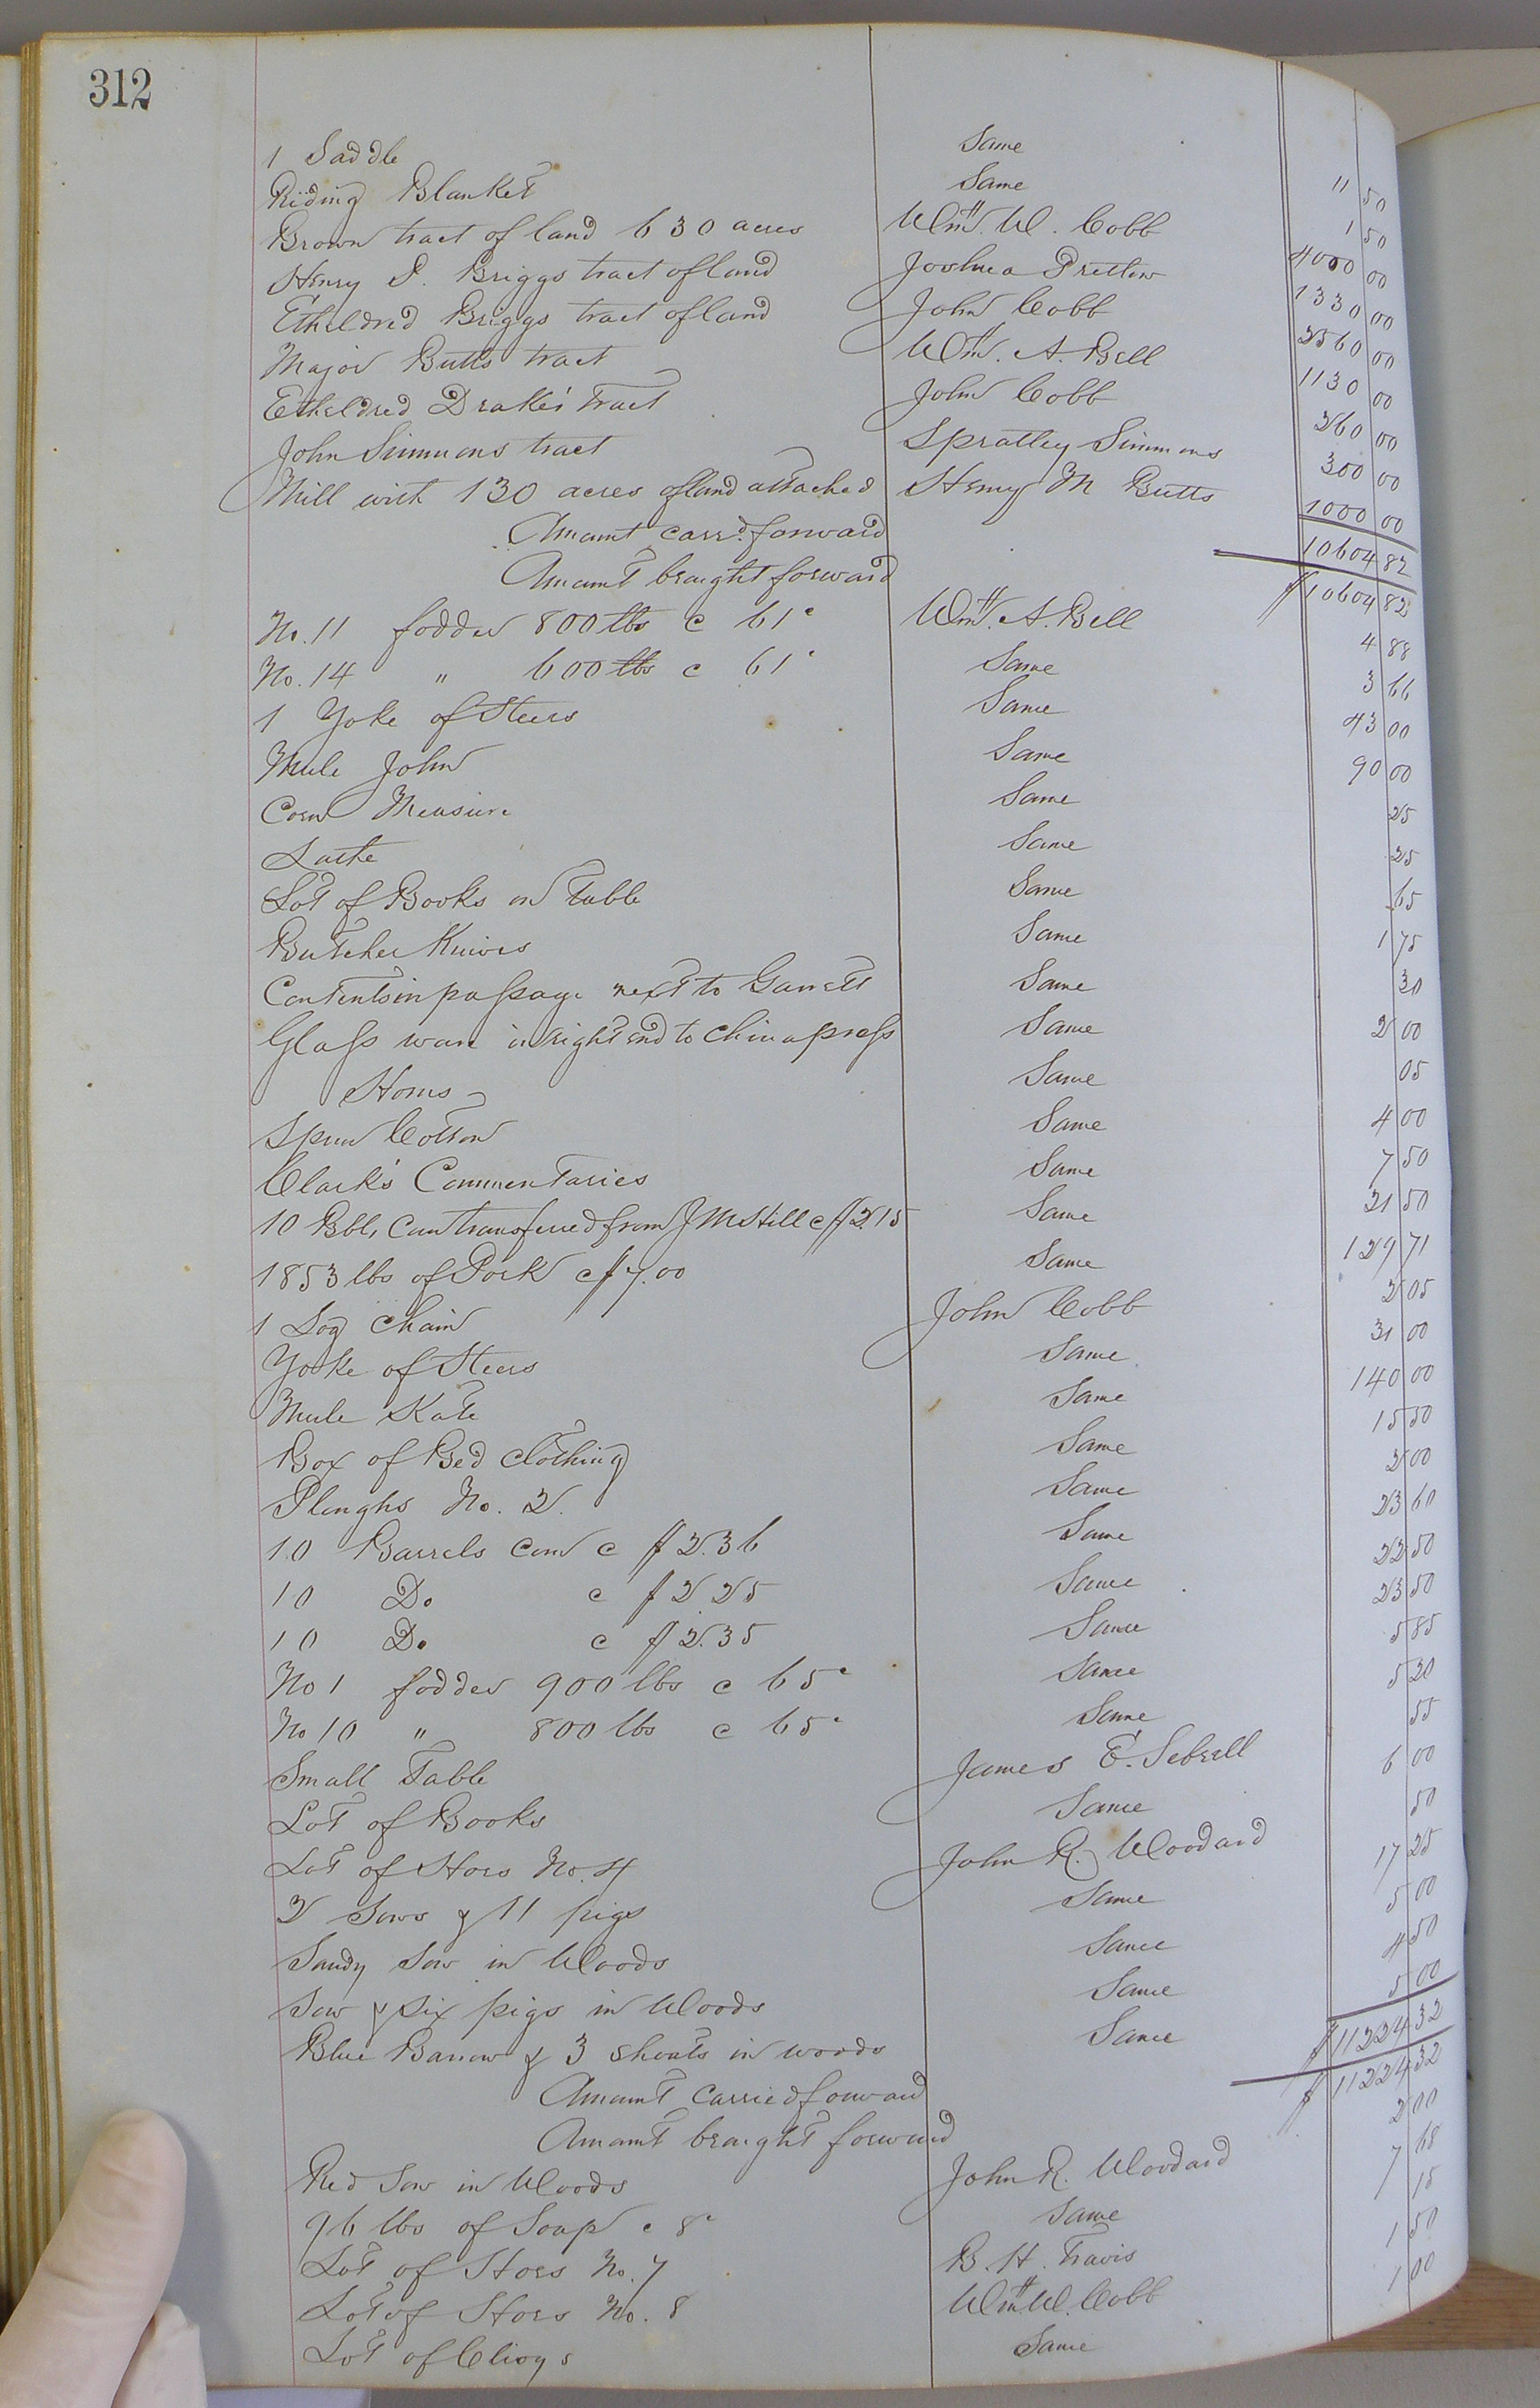 312
1 Saddle Same 11 50
Riding Blanket Same 1 50
Brown tract of land 630 acres Wm. W. Cobb 4000 00
Henry S. Briggs tract of land Joshua Pretlow 1330 00
Etheldred Briggs tract of land John Cobb 2560 00
Major Butts tract Wm. A. Bell 1130 00
Etheldred Drake's tract John Cobb 260 00
John Simmons tract Spratley Simmons 300 00
Mill with 130 acres of land attached Henry M Butts 1000 00
Amount carrd. forward 10604 82
Amount brought forward $10604 82
No. 11 fodder 800 lbs c 61c Wm. A. Bell 4 88
No. 14 " 600 lbs c 61c Same 3 66
1 Yoke of Steers Same 43 00
Mule John Same 90 00
Corn Measure Same 25
Lathe Same 25
Lot of Books on Table Same 65
Butcher Knives Same 1 75
Contents in passage next to Garrett Same 30
Glass ware in right end to china press Same 2 00
Horns Same 05
Spun Cotton Same 4 00
Clark's Commentaries Same 7 50
10 Bbls, Corn transferred from J M Hill c $2.15 Same 21 50
1853 lbs of Pork c $7.00 Same 129 71
1 Log Chain John Cobb 2 05
Yoke of Steers Same 31 00
Mule Kate Same 140 00
Box of Bed Clothing Same 15 50
Ploughs No. 2. Same 2 00
10 Barrels Corn c $2.36 Same 23 60
10 Do c $2 25 Same 22 50
10 Do c $2.35 Same 23 50
No 1 fodder 900 lbs c 65c Same 5 85
No 10 " 800 lbs c 65c Same 5 20
Small Table Same 55
Lot of Books James E. Sebrell 6 00
Lot of Hoes No. 4 Same 50
2 Sows & 11 pigs John R. Woodard 17 25
Sandy Sow in Woods Same 5 00
Sow & Six pigs in Woods Same 4 50
Blue Barrow & 3 shoats in woods Same 5 00
Amount Carried forward $11224 32
Amount brought forward $11224 32
Red Sow in Woods John R. Woodard 2 00
96 lbs of Soap c 8c Same 7 68
Lot of Hoes No. 7 B. H. Travis 15
Lot of Hoes No. 8 Wm W. Cobb 1 50
Lot of Same 1 00